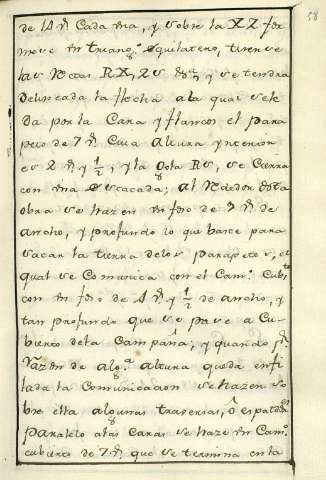 58
de 14 p.s Cada una, y sobre la XZ for
mese un triang.o Equilatero, tirense
las Rectas RX, ZS &.a y se tendra
delineada la flecha ala qual se le
da por la Cara y flancos el para
peto de 7 p.s Cuia altura ynterior
es 2 p.s y 1/2, y la Gola RS, se Cierra
con una Estacada; al Rededor desta
obra se hazen un foso de 9 p.s de
ancho, y profundo lo que baste para
sacar la tierra delos parapetos, el
qual se Comunica con el Cam.o Cub.to
con un foso de 4 p.s y 1/2 de ancho, y
tan profundo que se pase a Cu-
bierto dela Campaña; y quando p.r
razon de alg.a altura queda enfi
lada la Comunicacion se hazen so
bre ella algunas traversas, ô espaldon
paralelo alas Caras se haze un Cam.o
cubierto de 7 p.s que se termina en la